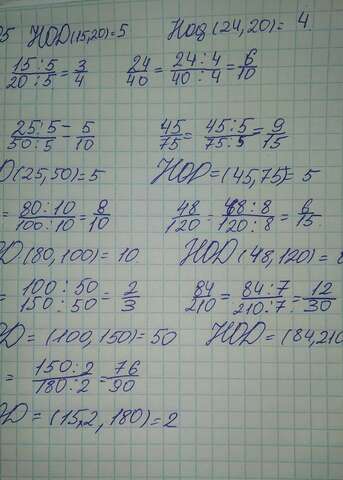 5 НОД (15,20)=5 Нод (24,20)= 4.
15:5/20:5=3/4 24/40=24:4/40:4=6/10
25:5/50:5=5/10 45/75=45:5/75:5=9/15
Д(25,50)=5 НОД=(45,75)=5
=80:10/100:10=8/10 48/120=48:8/120:8=6/15
Д(80,100)=10 НОД(48,120)=8
=100:50/150:50=2/3 84/210=84:7/210:7=12/30
Д=(100,150)=50 НОД=(84,210
=150:2/180:2=76/90
Д=(15,2, 180)=2